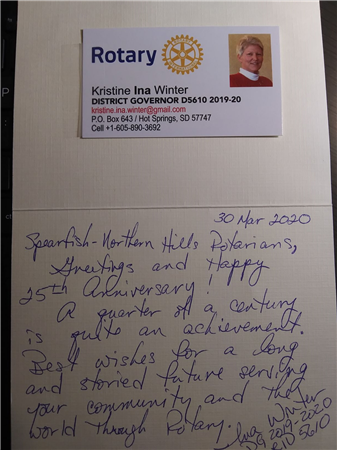 Rotary
Kristine Ina Winter
DISTRICT GOVERNOR D5610 2019-20
kristine.ina.winter@gmail.com
P.O. Box 643 / Hot Springs, SD 57747
Cell +1-605-890-3692
30 Mar 2020
Spearfish-Northern Hills Rotarians,
Greetings and Happy
25th Anniversary!
A quarter of a century
is quite an achievement.
Best wishes for a long
and storied future serving
your community and the
world through Rotary.
Ina Winter
DG 2019-2020
5610